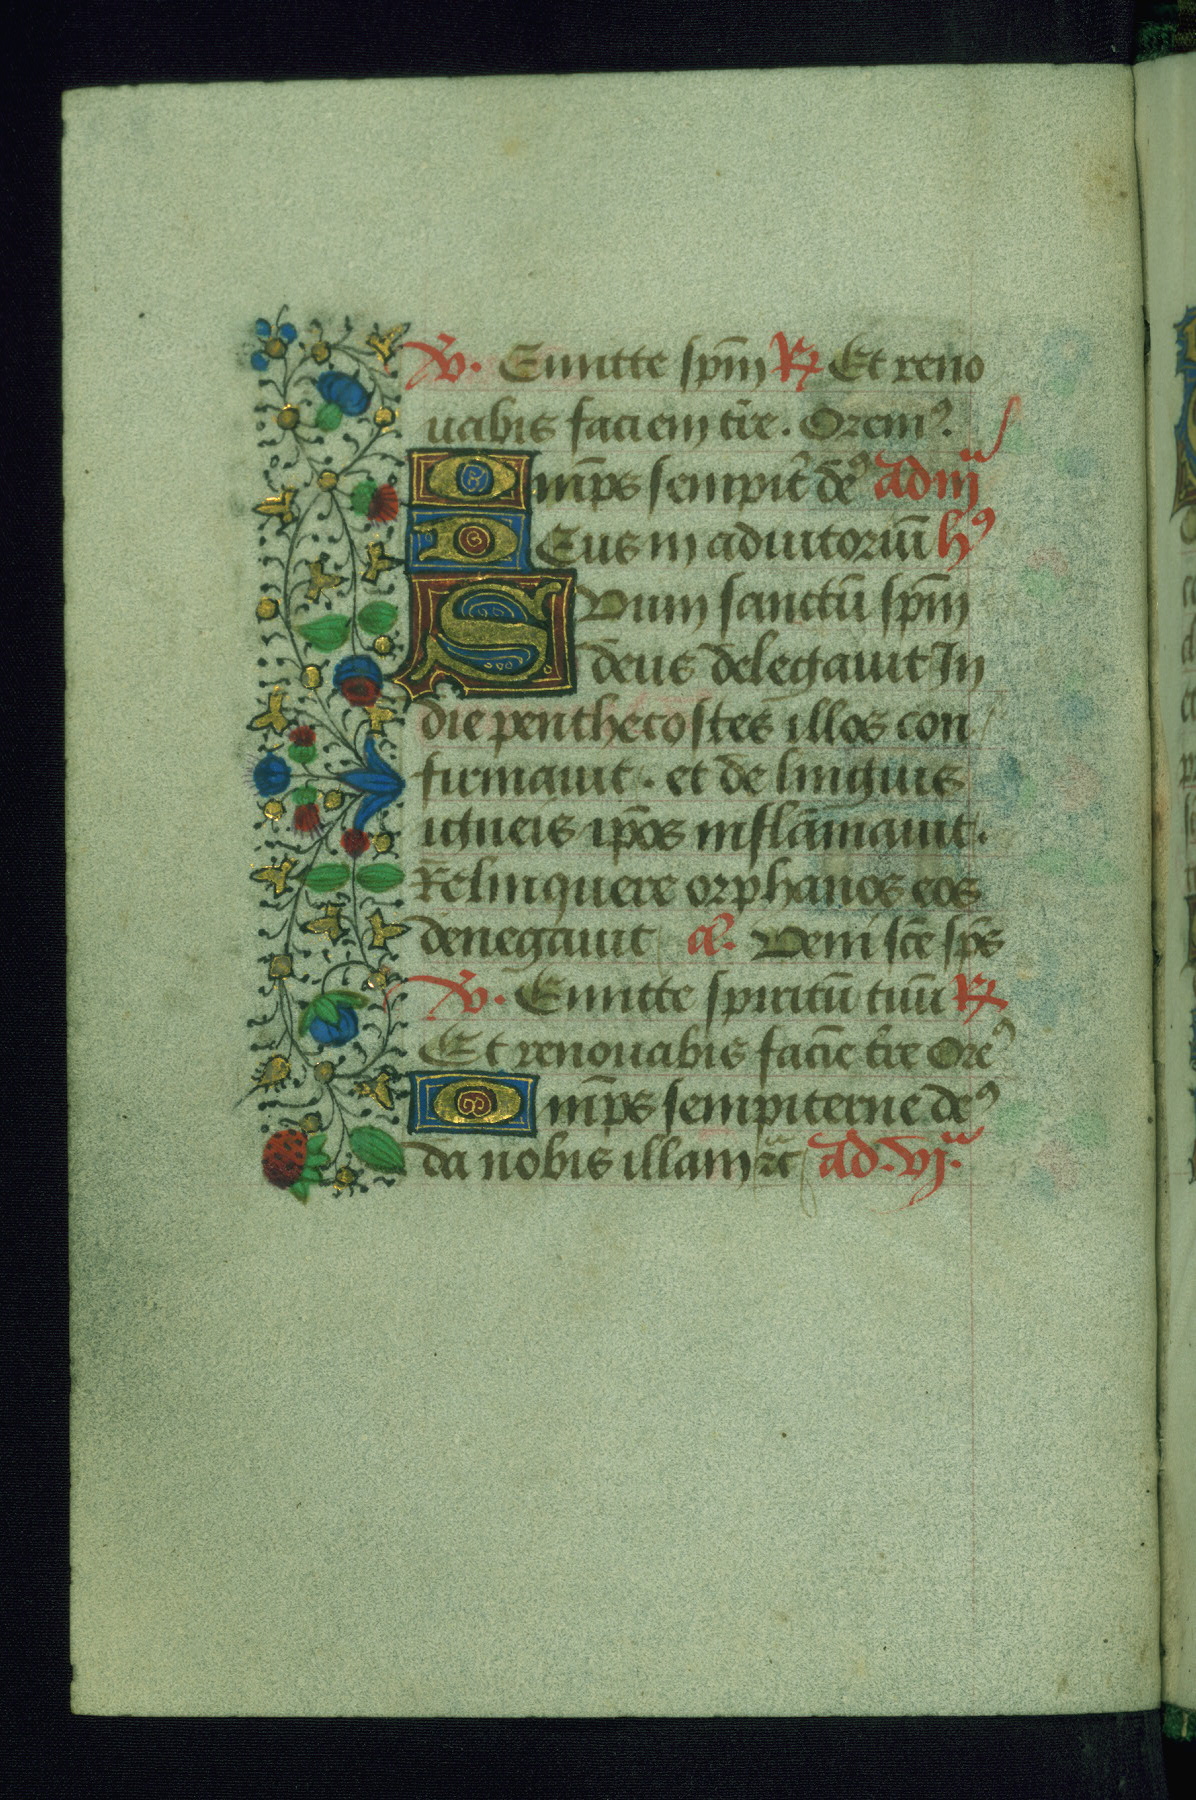 v̄. Emitte sp̄m R̷ Et reno
uabis faciem tr̄e. Oremꝰ.
Om̄ps sempit̄ deꝰ ad iijᵃ
Deus in adiutoriū hꝰ
Suum sanctū sp̄m
deus delegauit In
die penthecostes illos con
firmauit. et de linguis
igneis ip̄os inflāmauit.
Relinquere orphanos eos
denegauit a͞. Veni sc̄e sp̄s
v̄. Emitte spiritū tuū R̷
Et renouabis facīe tr̄e Oreꝰ
Om̄ps sempiterne deꝰ
da nobis illam ꝛc̄ ad. vjᵃ.